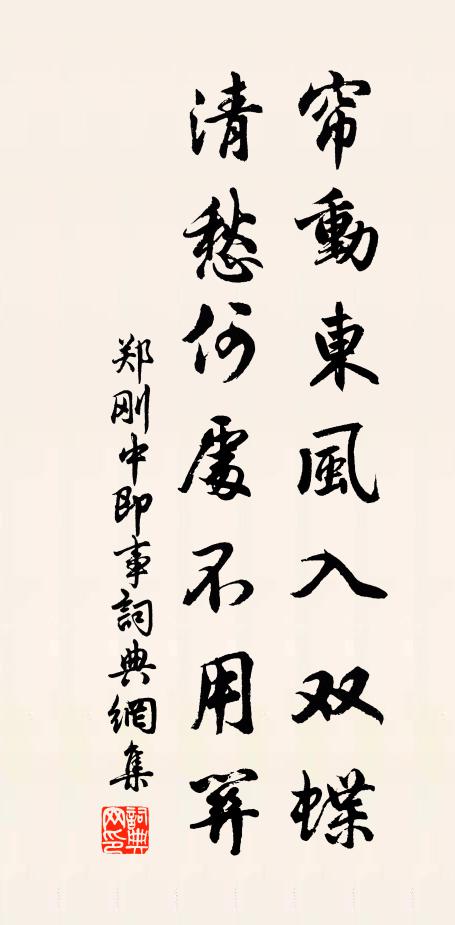 帘動東風入双蝶
清愁何處不用募
郑刚中即事詞典網集
詞典网印